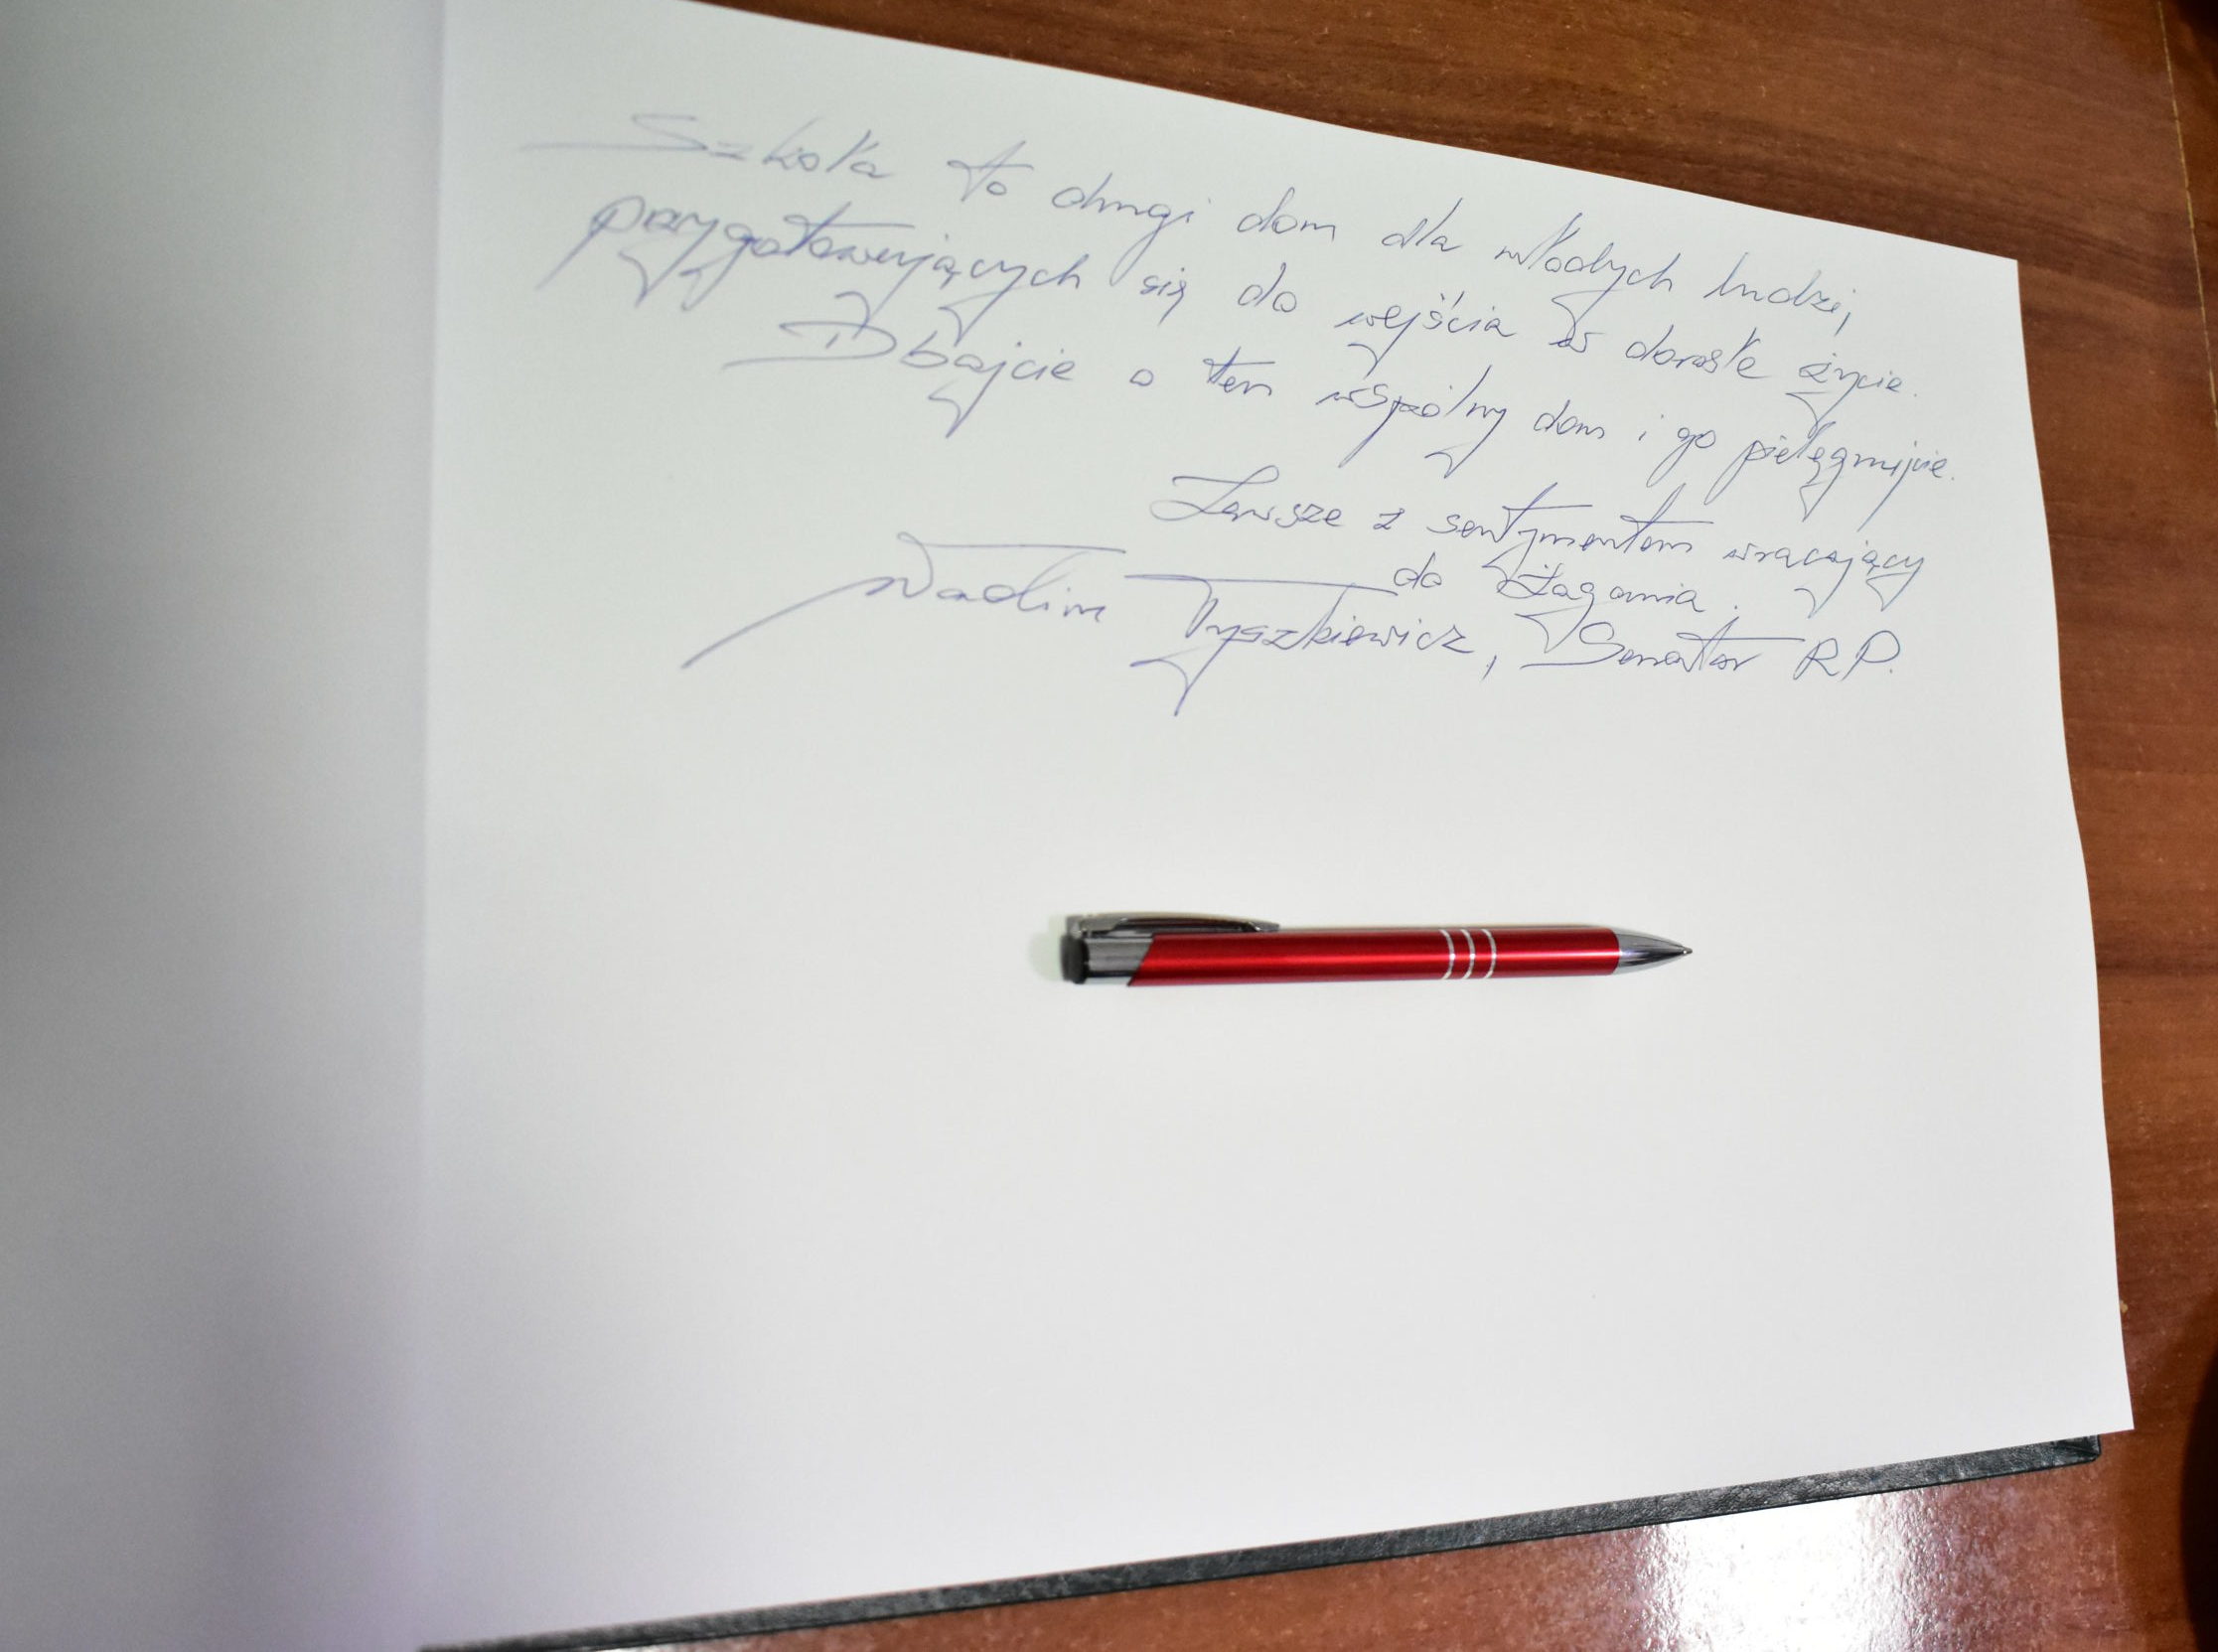 Szkoła to drugi dom dla młodych ludzi,
przygotowujących się do wejścia w dorosłe życie.
Dbajcie o ten wspólny dom i go pielęgnujcie.
Zawsze z sentymentem wracający
do Żagania.
Wadim Tyszkiewicz, Senator RP.